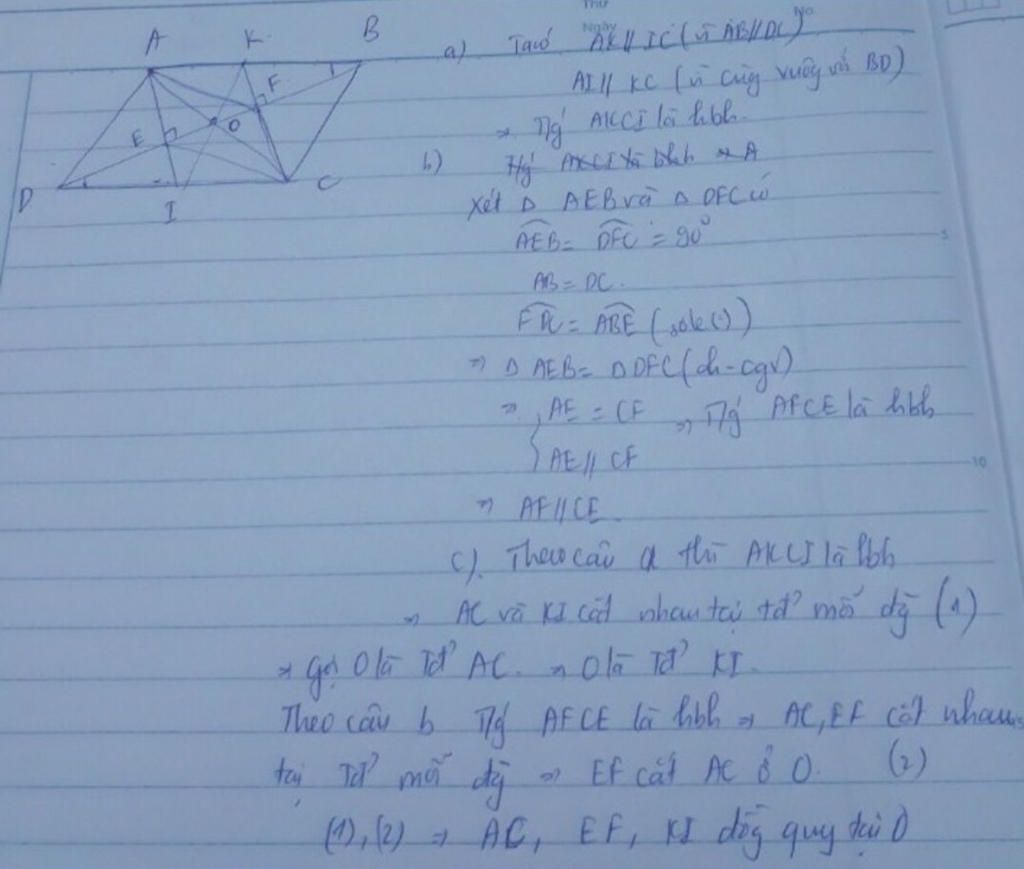 Thứ
Ngày No
A K B
F
E O
D I C
a) Ta có AK // IC (vì AB // DC)
AI // KC (vì cùng vuông với BD)
⇒ Tứ AKCI là hbh.
b)
Xét Δ AEB và Δ DFC có
AEB = DFC = 90°
AB = DC.
FDC = ABE (sole (.))
⇒ Δ AEB = Δ DFC (ch - cgv)
⇒ AE = CF ⇒ Tứ AFCE là hbh
AE // CF
⇒ AF // CE
5
10
c). Theo câu a thì AKCI là hbh
⇒ AC và KI cắt nhau tại tđ² mỗi dg̃ (1)
⇒ Gọi O là Tđ² AC. ⇒ O là Tđ² KI.
Theo câu b Tứ AFCE là hbh ⇒ AC, EF cắt nhau
tại Tđ² mỗi dg̃ ⇒ EF cắt AC ở O. (2)
(1), (2) ⇒ AC, EF, KI đồg quy tại O